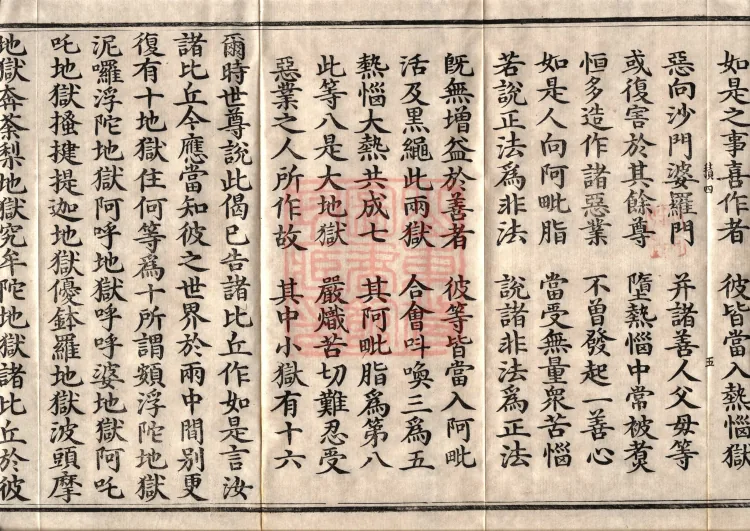 如是之事喜作者　彼皆當入熱惱獄
積四　五
惡向沙門婆羅門　并諸善人父母等
或復害於其餘尊　墮熱惱中常被煑
恒多造作諸惡業　不曾發起一善心
如是人向阿毗脂　當受無量衆苦惱
若說正法爲非法　說諸非法爲正法
旣無增益於善者　彼等皆當入阿毗
活及黑繩此兩獄　合會叫喚三爲五
熱惱大熱共成七　其阿毗脂爲第八
此等八是大地獄　嚴熾苦切難忍受
惡業之人所作故　其中小獄有十六
爾時世尊說此偈已告諸比丘作如是言汝
諸比丘今應當知彼之世界於兩中間別更
復有十地獄住何等爲十所謂頞浮陀地獄
泥囉浮陀地獄阿呼地獄呼呼婆地獄阿吒
吒地獄搔揵提迦地獄優鉢羅地獄波頭摩
地獄奔荼梨地獄究牟陀地獄諸比丘於彼